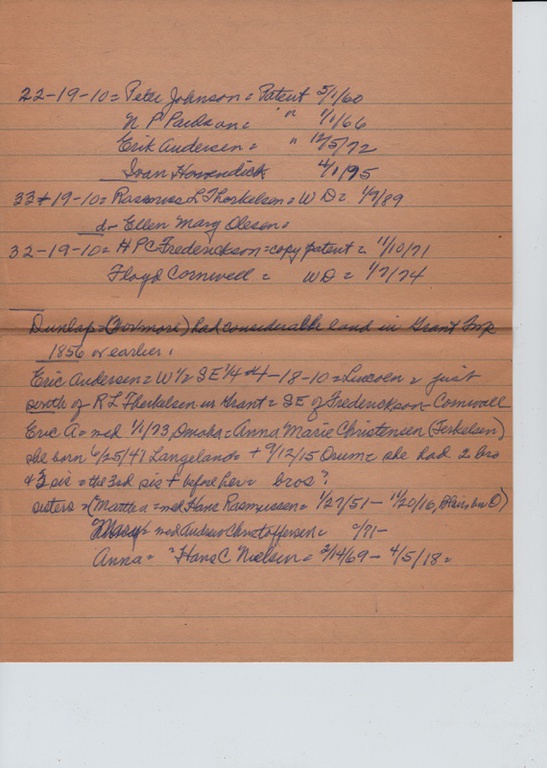 22-19-10= Peter Johnson = Patent 5/1/60
N P Paulson = " 1/1/66
Erik Andersen = " 12/5/72
4/1/95
33+19-10= Rasmuss L Thorkelson = W D = 1/9/89
do Ellen Mary Olesen =
32-19-10= H P C Frederickson = copy patent = 11/10/71
Floyd Cornwell = WD = 1/7/74
Dunlap = had considerable land in Grant Twp
1856 or earlier.
Eric Andersen = W 1/2 SE 1/4 of 4-18-10 = Lincoln = just
south of R L Therkelsen in Grant = SE of Frederickson-Cornwell
Eric A = med 1/1/73, Omaha = Anna Marie Christensen (Terkelsen)
she born 6/25/47 Langeland + 9/12/15 = she had 2 bro
& 3 sis = the 3rd sis + before her = bros?
sisters = (Martha = med Hans Rasmussen = 1/27/51 - 11/20/16,
Mary = med Andrew Christoffersen = /71-
Anna = " Hans C Nielsen = 2/14/69 - 4/5/18 =